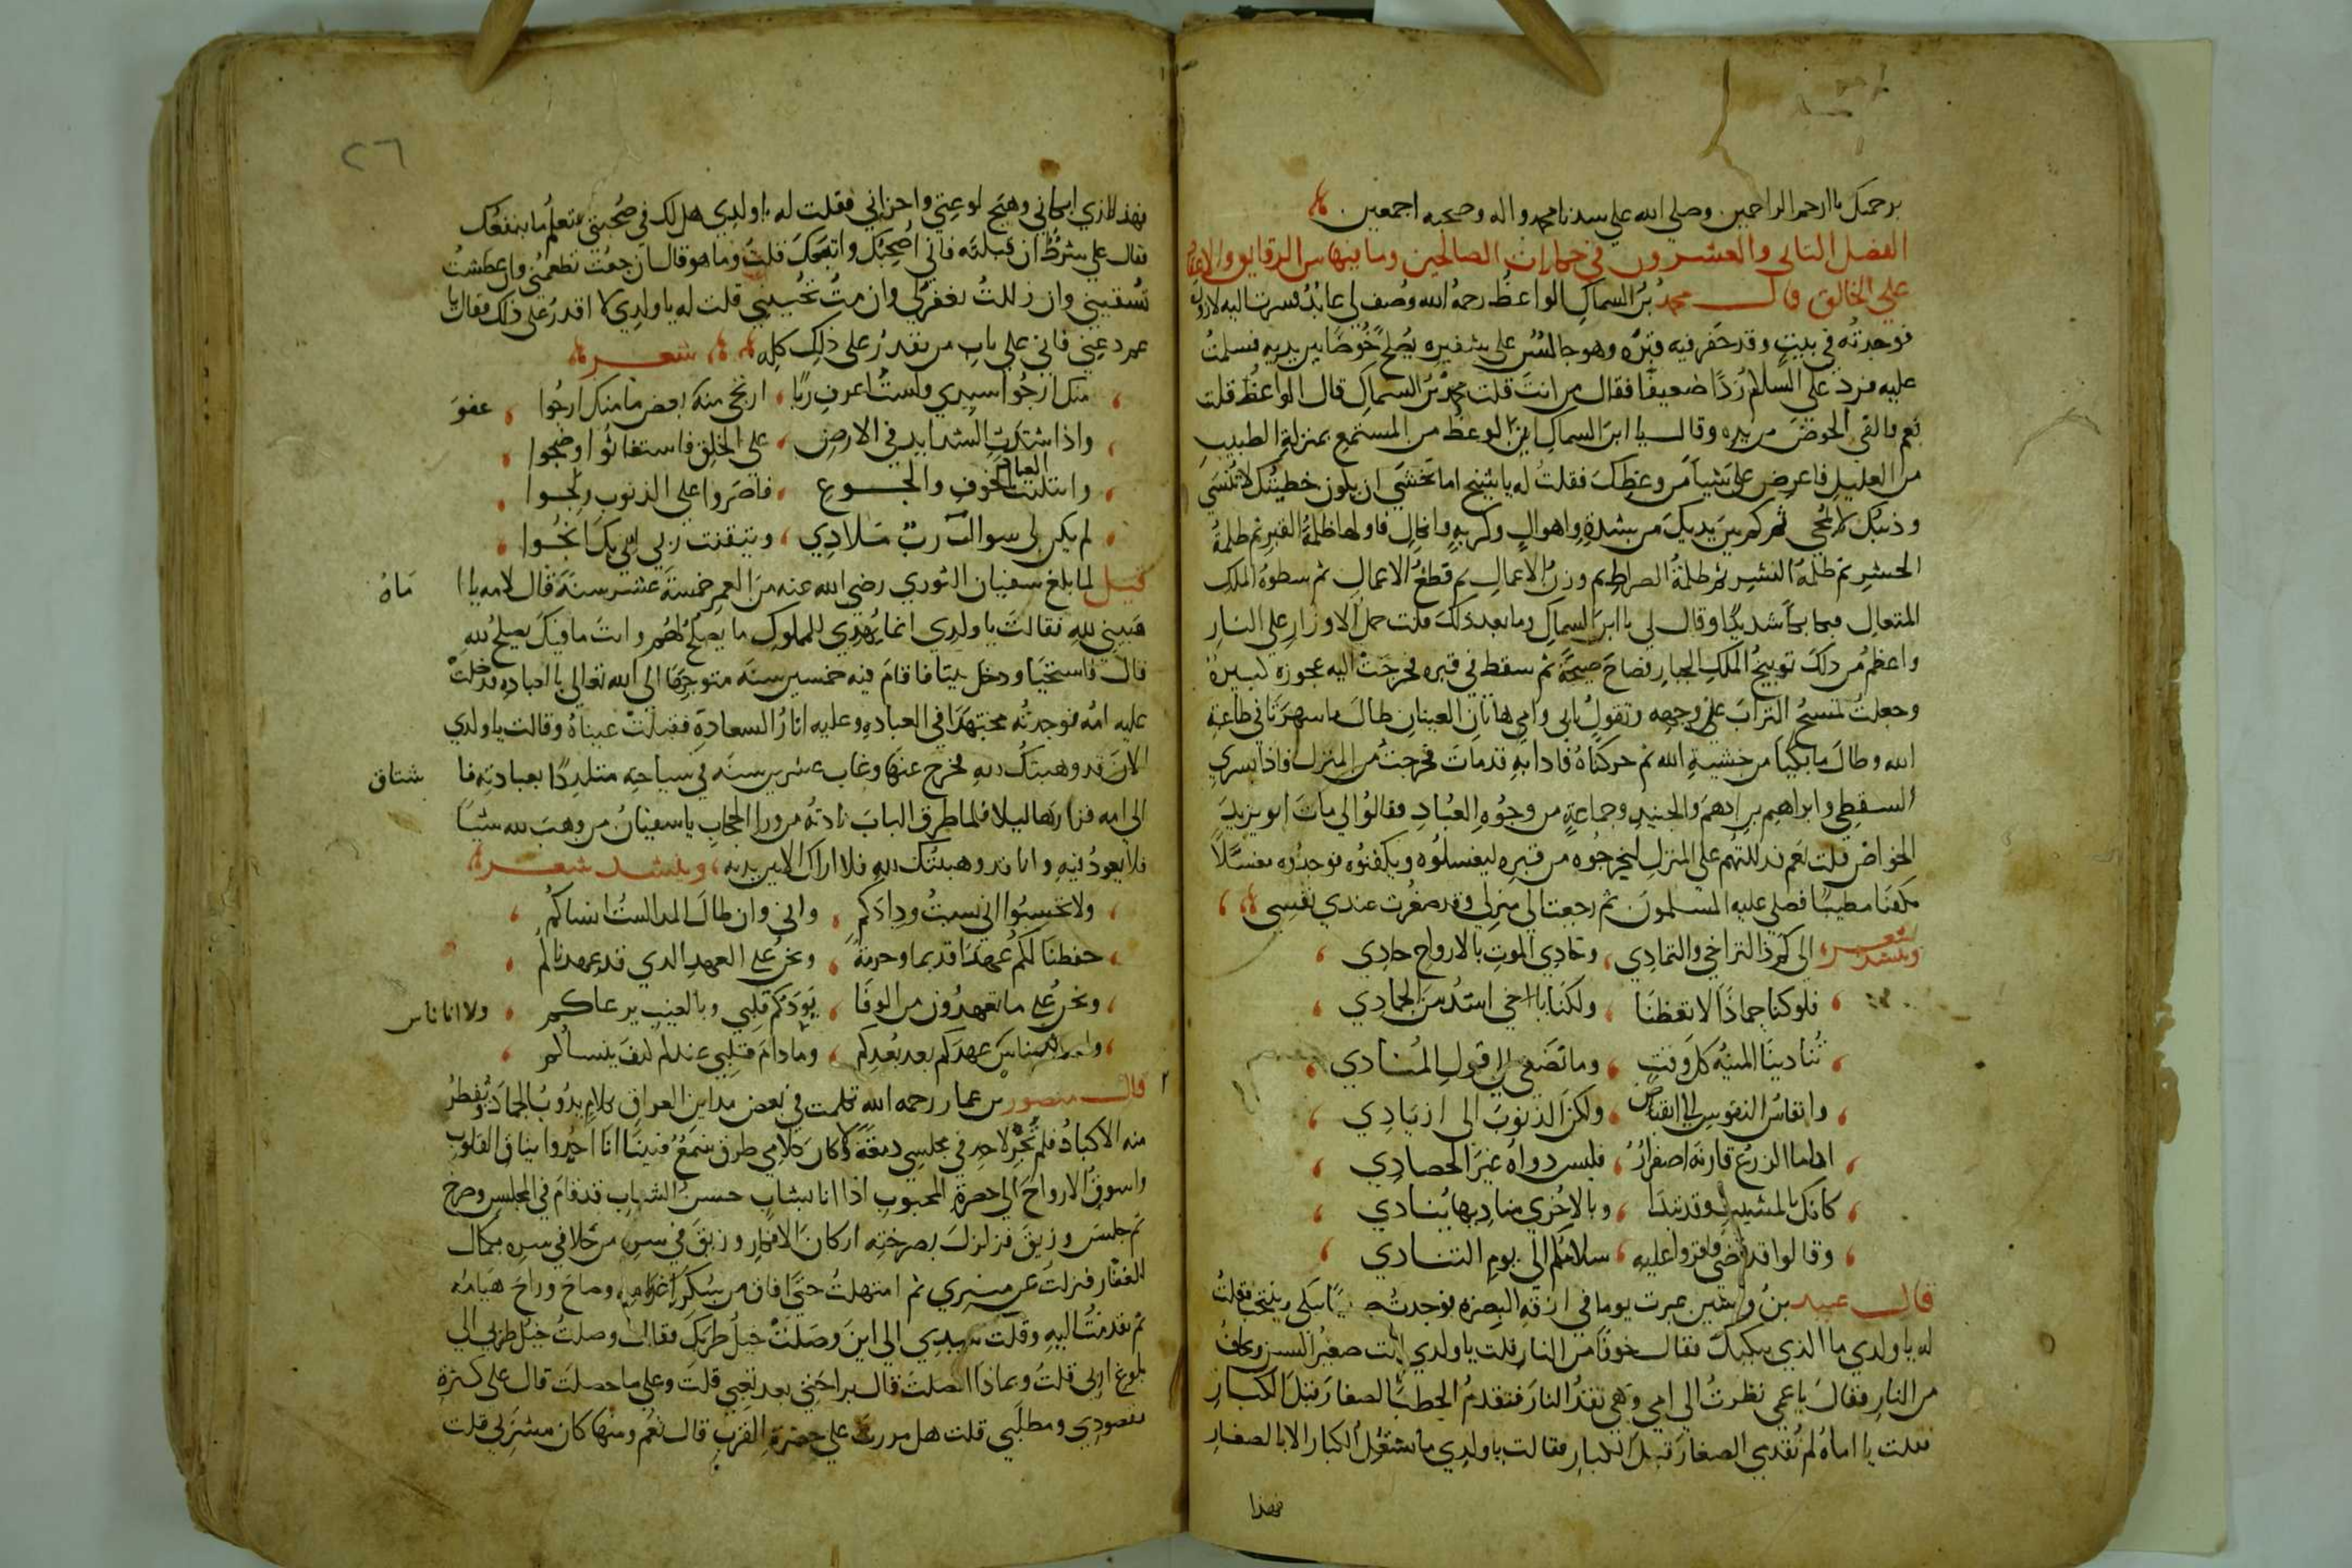 برحمتك يا ارحم الراحمين وصلى الله على سيدنا محمد واله وصحبه اجمعين
الفصل الثانى والعشرون في حكايات الصالحين وما فيها من الرقايق والاعتماد
على الخالق قال محمد بن السماك الواعظ رحمه الله وصف لى عابد فسرت اليه لازوره
فوجدته في بيت وقد حفر فيه قبره وهو جالس على شفيره يصلح خوصا بين يديه فسلمت
عليه فرد علي السلام ردا ضعيفا فقال من انت قلت محمد بن السماك قال الواعظ قلت
نعم فالقى الخوص من يده وقال يا ابن السماك ان الوعظ من المستمع بمنزلة الطبيب
من العليل فاعرض على شيا من وعظك فقلت له يا شيخ اما تخشى ان يكون خطيتك لا تنسى
وذنبك لا يمحى ثم كم بين يديك من شدة واهوال وكربة وانكال فاولها ظلمة القبر ثم ظلمة
الحشر ثم ظلمة النشر ثم ظلمة الصراط ثم وزن الاعمال ثم قطع الاعمال ثم سطوة الملك
المتعال فبكا بكا شديدا وقال لى يا ابن السماك وما بعد ذلك قلت حمل الاوزار على النار
واعظم من ذلك توبيخ الملك الجبار فصاح صيحة ثم سقط في قبره فخرجت اليه عجوزه كبيرة
وجعلت تمسح التراب على وجهه وتقول بابى وامى هاتان العينان طال ما سهرتا في طاعة
الله وطال ما بكيا من خشية الله ثم حركناه فاذا به قد مات فخرجت من المنزل فاذا بسري
السقطي وابراهيم بن ادهم والجنيد وجماعة من وجوه العباد فقالوا لى مات ابو يزيد
الخواص قلت نعم فدللتهم على المنزل ليخرجوه من قبره ليغسلوه ويكفنوه فوجدوه مغسلا
مكفنا مطيبا فصلى عليه المسلمون ثم رجعت الى منزلى وقد صغرت عندي نفسى
وينشد شعر الى كم ذا التراخى والتمادي وحادي الموت بالارواح حادي
فلو كنا جمادا لاتعظنا ولكنا يا اخى اشد من الجمادي
تنادينا المنيه كل وقت وما نصغى الى قول المنادي
وانفاس النفوس الى انتقاص ولكن الذنوب الى ازديادي
اذا ما الزرع قارنه اصفرار فليس دواه غير الحصادي
كانك بالمشيب وقد تبدا وبالاخرى مناديها ينادي
وقالوا قد قضى فاقروا عليه سلامكم الى يوم التنادي
قال عبيد بن واشين عبرت يوما في ازقة البصرة فوجدت صبيا يبكى وينتحب فقلت
له يا ولدي ما الذي يبكيك فقال خوفا من النار قلت يا ولدي انت صغير السن وتخاف
من النار فقال يا عمى نظرت الى امى وهي تقد النار فتقدم الحطب الصغار قبل الكبار
فقلت يا اماه لم تقدمى الصغار قبل الكبار فقالت يا ولدي ما تشتعل الكبار الا بالصغار
فهذا
٢٦
فهذا الذي ابكاني وهيج لوعتي واحزاني فقلت له يا ولدي هل لك في صحبتى تتعلم ما ينفعك
فقال على شرط ان قبلته فاني اصحبك واتبعك قلت وما هو قال ان جعت تطعمنى وان عطشت
تسقيني وان زللت تغفر لى وان مت تحييني قلت له يا ولدي لا اقدر على ذلك فقال يا
عم دعنى فانى على باب من يقدر على ذلك كله شعر
منك ارجوا سيدي ولست اعرف ربا ارتجى منه بعض ما منك ارجوا عفو
واذا اشتدت الشدايد في الارض على الخلق فاستغاثوا وضجوا
وابتليت العباد بالخوف والجوع فاصروا على الذنوب ولجوا
لم يكن لى سواك رب ملاذي وتيقنت ربى اننى بك انجوا
قيل لما بلغ سفيان الثوري رضى الله عنه من العمر خمسة عشر سنة قال لامه يا ا ماه
هبينى لله فقالت يا ولدي انما يهدي للملوك ما يصلح لهم وانت ما فيك يصلح لله
قال فاستحيا ودخل بيتا فاقام فيه خمسين سنة متوجها الى الله تعالى بالعباده فدخلت
عليه امه فوجدته مجتهدا في العباده وعليه اثار السعادة فقبلت عيناه وقالت يا ولدي
الان قد وهبتك لله فخرج عنها وغاب عشرين سنه في سياحته متلذذا بعبادته فا شتاق
الى امه فزارها ليلا فلما طرق الباب نادته من ورا الحجاب يا سفيان من وهب لله شيا
فلا يعود فيه وانا قد وهبتك لله فلا اراك الا بين يديه وينشد شعر
ولا تحسبوا انى نسيت ودادكم وانى وان طال المدا لست انساكم
حفظنا لكم عهدا قديما وحرمة ونحن على العهد الذي قد عهدناكم
ونحن على ما تعهدون من الوفا يودكم قلبى وبالغيب يرعاكم ولا انا ناس
عهدكم بعد بعدكم وما دام قلبى عندكم كيف ينساكم
قال منصور بن عمار رحمه الله تكلمت في بعض مداين العراق بكلام يذوب الجماد وتفطر
منه الاكباد فلم تجر لاحد في مجلسى دمعة ولا كان كلامى طرق سمع فبينا انا احدوا نياق القلوب
واسوق الارواح الى حضرة المحبوب اذا انا بشاب حسن الشباب قد قام في المجلس وصرخ
ثم جلس وزعق فزلزل بصرخته اركان الافكار وزعق في سره من خلا في سره مكال
الغفار فنزلت عن منبري ثم امتهلت حتى افاق من سكر غرامه وصاح وراح هيامه
ثم تقدمت اليه وقلت سيدي الى اين وصلت خيل طربك فقال وصلت خيل طربى الى
بلوغ اربى قلت وبماذا اتصلت قال براحتى بعد تعبى قلت وعلى ما حصلت قال على كنزة
مقصودي ومطلبى قلت هل مررت على حضرة القرب قال نعم ومنها كان مشربى قلت